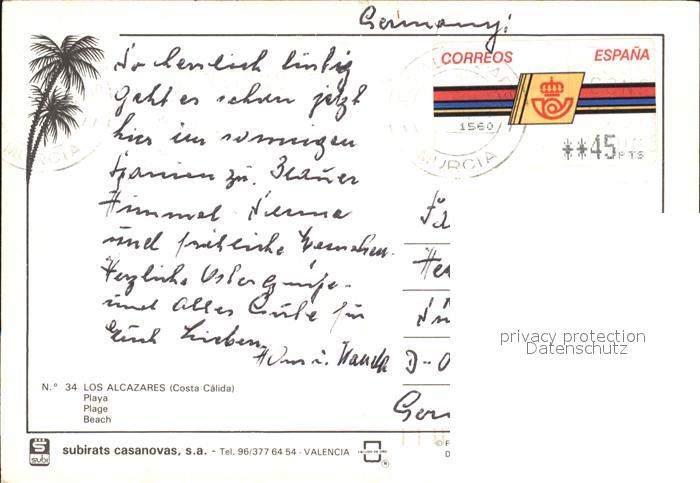 Germany!
CORREOS ESPAÑA
1560
MURCIA
**45 PTS
MURCIA
So herrlich lustig
geht es schon jetzt
hier im sonnigen
Spanien zu. Blauer
Himmel. Sonne
und fröhliche Menschen.
Herzliche Ostergrüße
und Alles Gute für
Euch Lieben
D-0
Ger
privacy protection
Datenschutz
N.º 34 LOS ALCAZARES (Costa Cálida)
Playa
Plage
Beach
subi
subirats casanovas, s.a. - Tel. 96/377 64 54 - VALENCIA